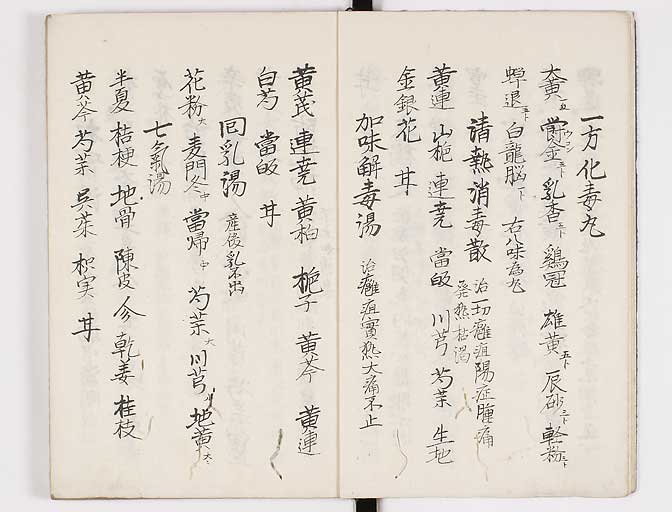 一方化毒丸
大黄 五 欝金 五下 乳香 五下 鶏冠 雄黄 五下 辰砂 三下 軽粉 三下
蝉退 五下 白龍脳 一下 右八味為丸
清熱消毒散 治一切癰疽陽症腫痛
発熱枯渇
黄連 山梔 連尭 當皈 川芎 芍薬 生地
金銀花 甘
加味解毒湯 治癰疽實熱大痛不止
黄茂 連尭 黄柏 梔子 黄芩 黄連
白芍 當皈 甘
回乳湯 産後乳不出
花粉 大 麦門冬 中 當帰 中 芍薬 大 川芎 地黄 大
七氣湯
半夏 桔梗 地骨 陳皮 参 乾姜 桂枝
黄芩 芍薬 呉茱 枳実 甘